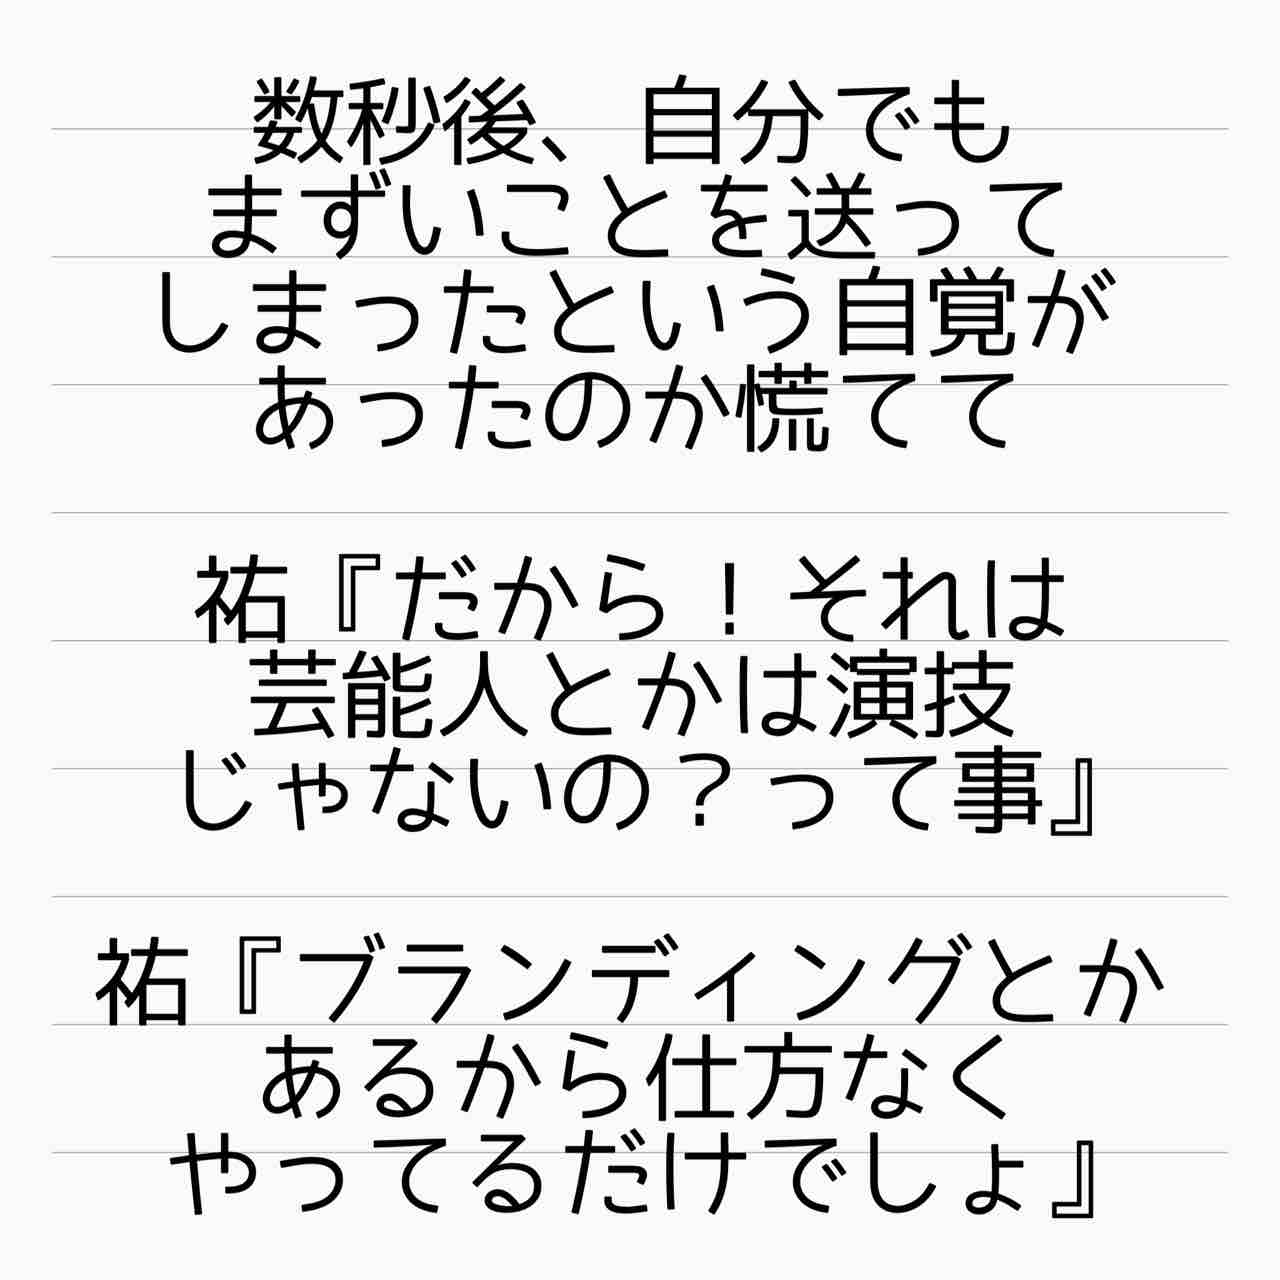 数秒後、自分でも
まずいことを送って
しまったという自覚が
あったのか慌てて
祐『だから！それは
芸能人とかは演技
じゃないの？って事』
祐『ブランディングとか
あるから仕方なく
やってるだけでしょ』